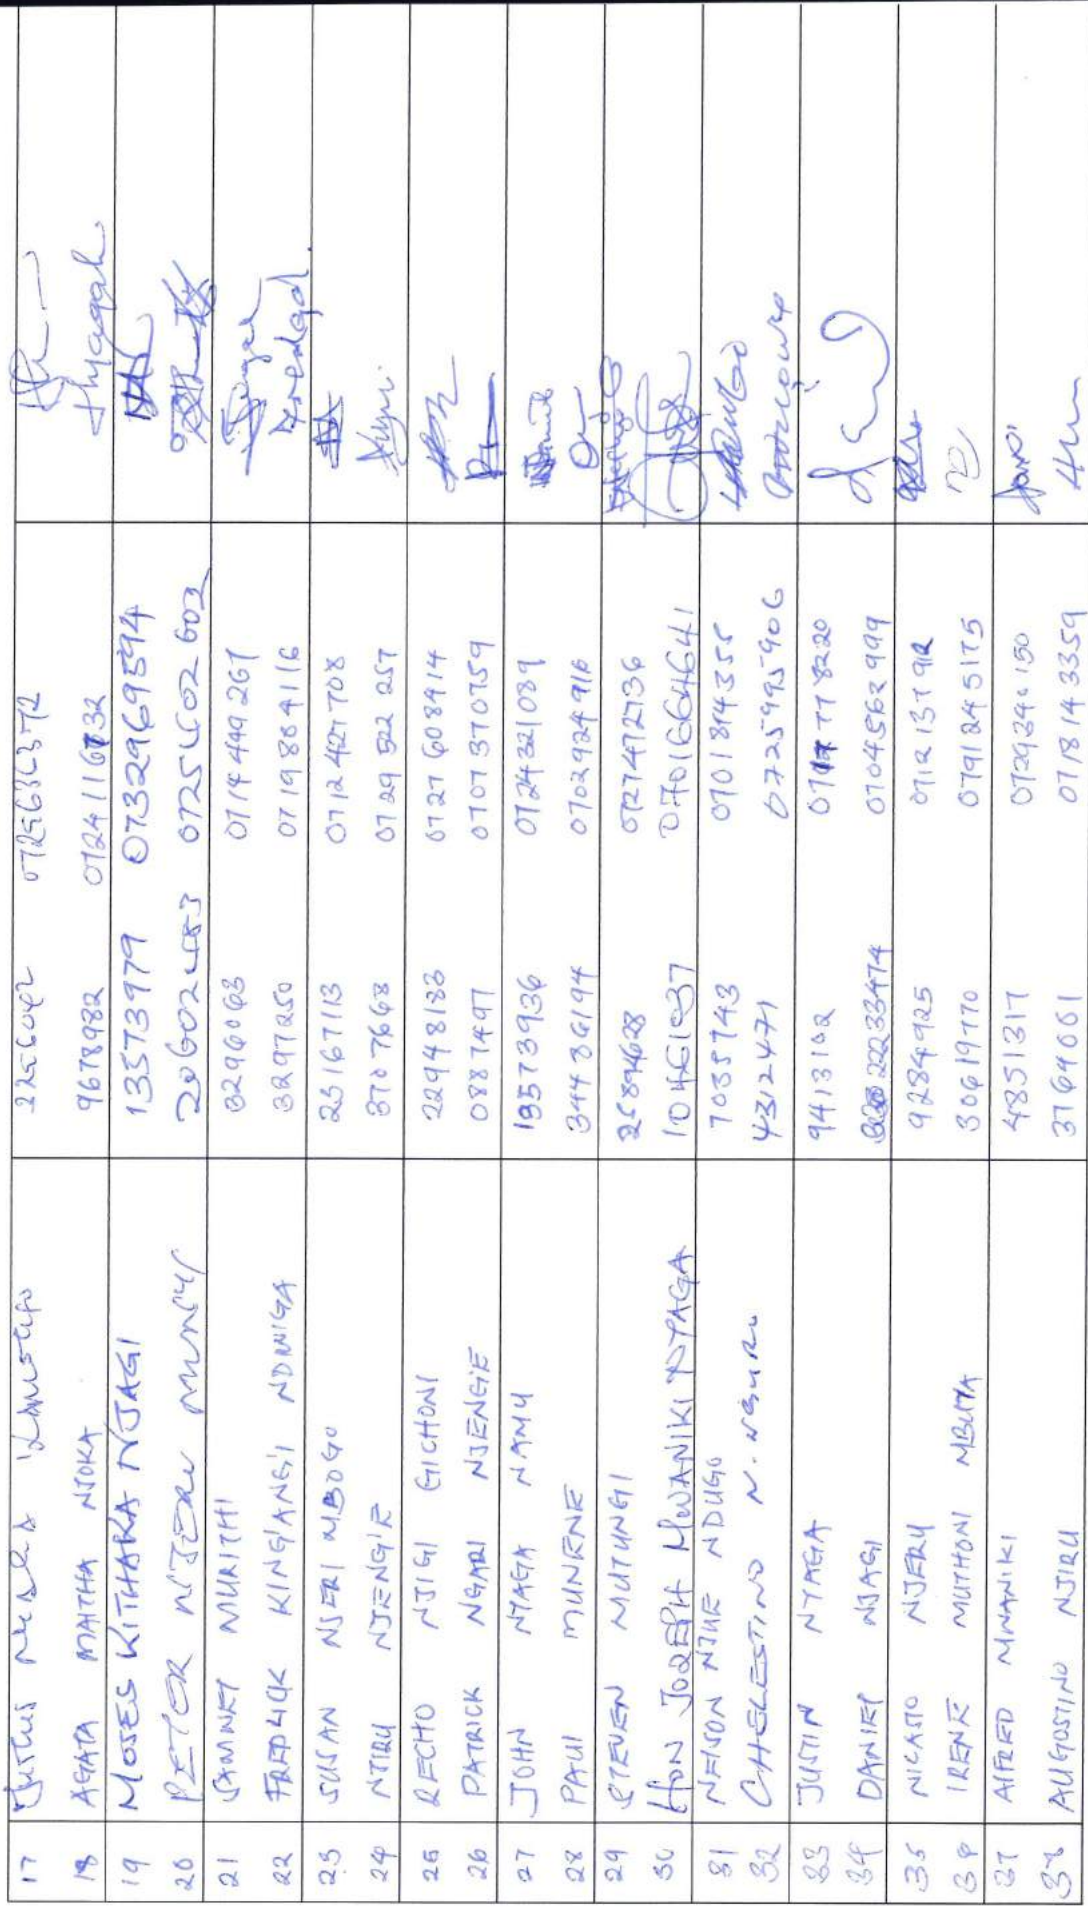 17 Julius 3256042 0725636372
18 AGATA MAITHA NJOKA 9678982 0724116732 Nyagah
19 MOSES KITHAKA NJAGI 13573979 0732969594
20 PETER NJERU 0725602602
21 SAMWEL MURITHI 3296063 0714449267
22 FREDRICK KING'ANG'I NDWIGA 3297250 0719864116
23 SUSAN NJERI MBOGO 23167113 0712427708
24 NJIRU NJENGIE 3707668 0729522257
25 RECHO NJIGI GICHONI 22948183 0727608914
26 PATRICK NGARI NJENGIE 0887497 0707370759
27 JOHN NTAGA NAMU 13573936 0724321089
28 PAUL MUNENE 34486194 0702924916
29 STEVEN MUTUNGI 25894628 0727472736
30 HON JOSEPH MWANIKI NYAGA 0701664641
31 NELSON NJUE NDUGO 7035743 0701894355
32 CHELESTINO N. NGURU 4312471 0725995906
33 JUSTIN NTAGA 9413102
34 DANIEL NJAGI 22233474 0704562999
35 NICASIO NJERU 9284925
36 IRENE MUTHONI MBUTA 30619770 0791245175
37 ALFRED MWANIKI 4851317 0729240150
38 AUGOSTINO NJIRU 37694061 0718143359